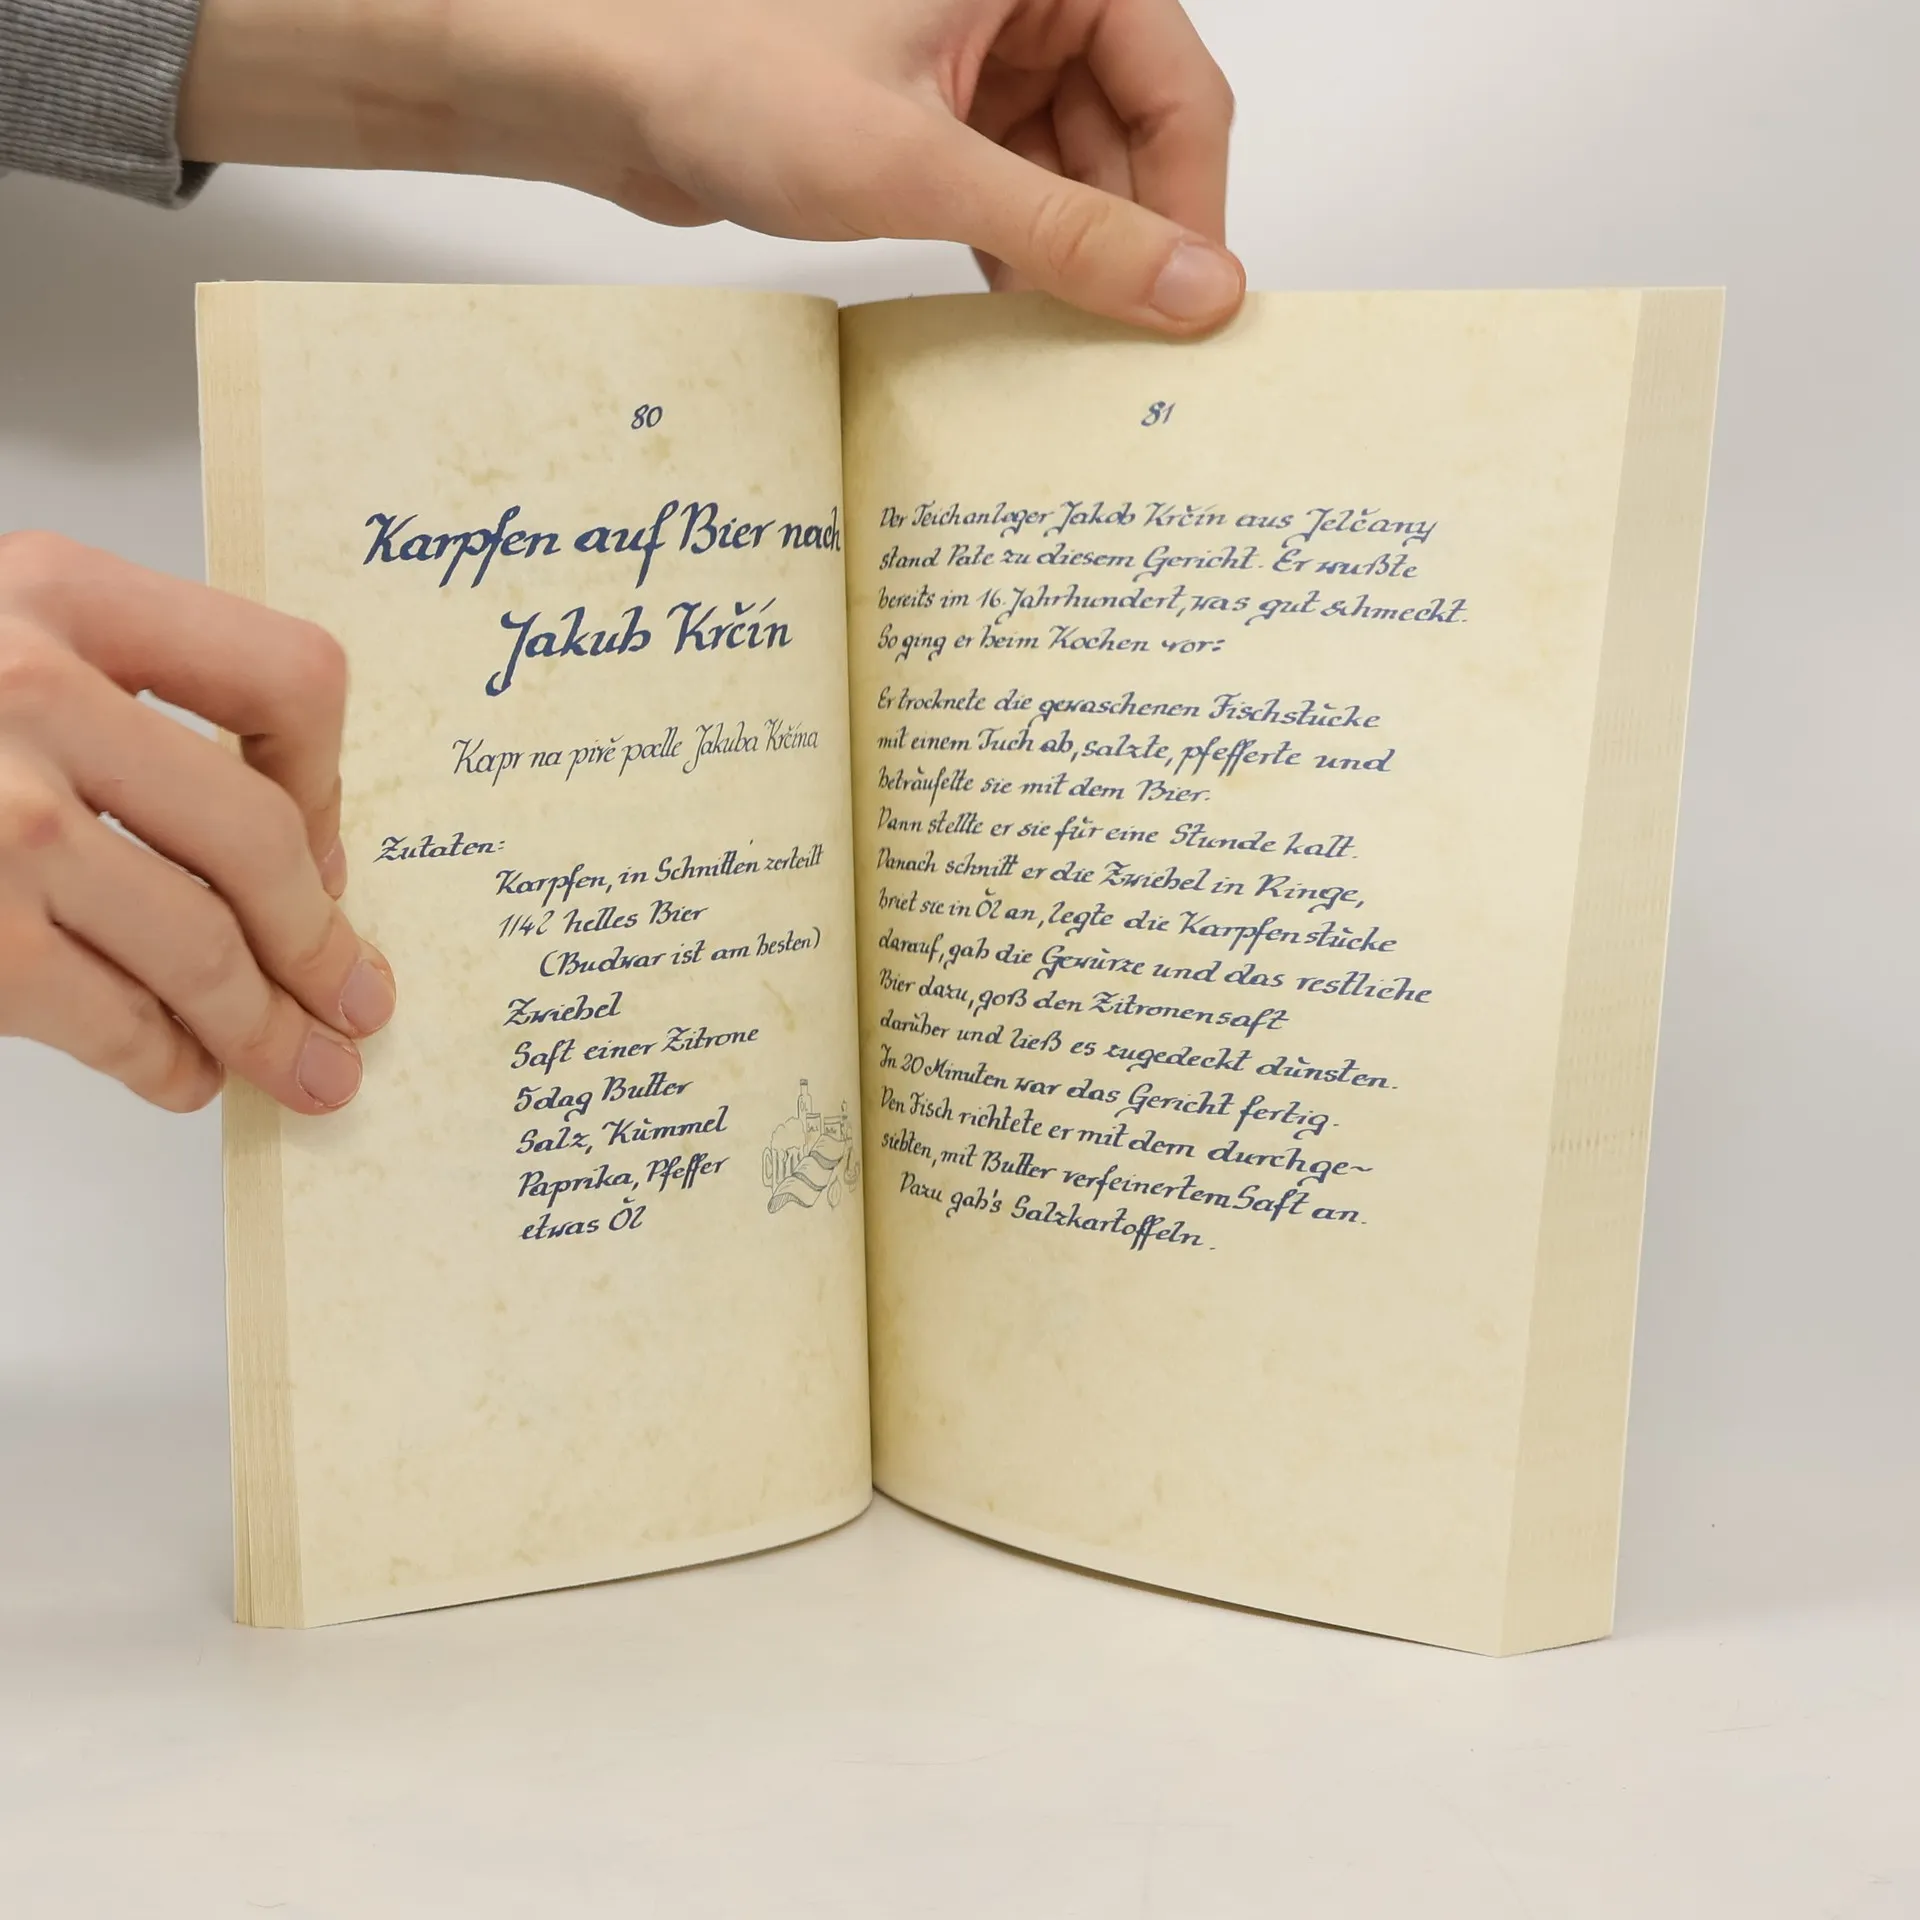 80
Karpfen auf Bier nach
Jakub Krčín
Kapr na pivě podle Jakuba Krčína
Zutaten:
Karpfen, in Schnitten zerteilt
1/4 l helles Bier
(Budwar ist am besten)
Zwiebel
Saft einer Zitrone
5 dag Butter
Salz, Kümmel
Paprika, Pfeffer
etwas Öl
81
Der Teichanleger Jakob Krčín aus Jelčany
stand Pate zu diesem Gericht. Er wußte
bereits im 16. Jahrhundert, was gut schmeckt.
So ging er beim Kochen vor:
Er trocknete die gewaschenen Fischstücke
mit einem Tuch ab, salzte, pfefferte und
beträufelte sie mit dem Bier.
Dann stellte er sie für eine Stunde kalt.
Danach schnitt er die Zwiebel in Ringe,
briet sie in Öl an, legte die Karpfenstücke
darauf, gab die Gewürze und das restliche
Bier dazu, goß den Zitronensaft
darüber und ließ es zugedeckt dünsten.
In 20 Minuten war das Gericht fertig.
Den Fisch richtete er mit dem durchge~
siebten, mit Butter verfeinertem Saft an.
Dazu gab's Salzkartoffeln.